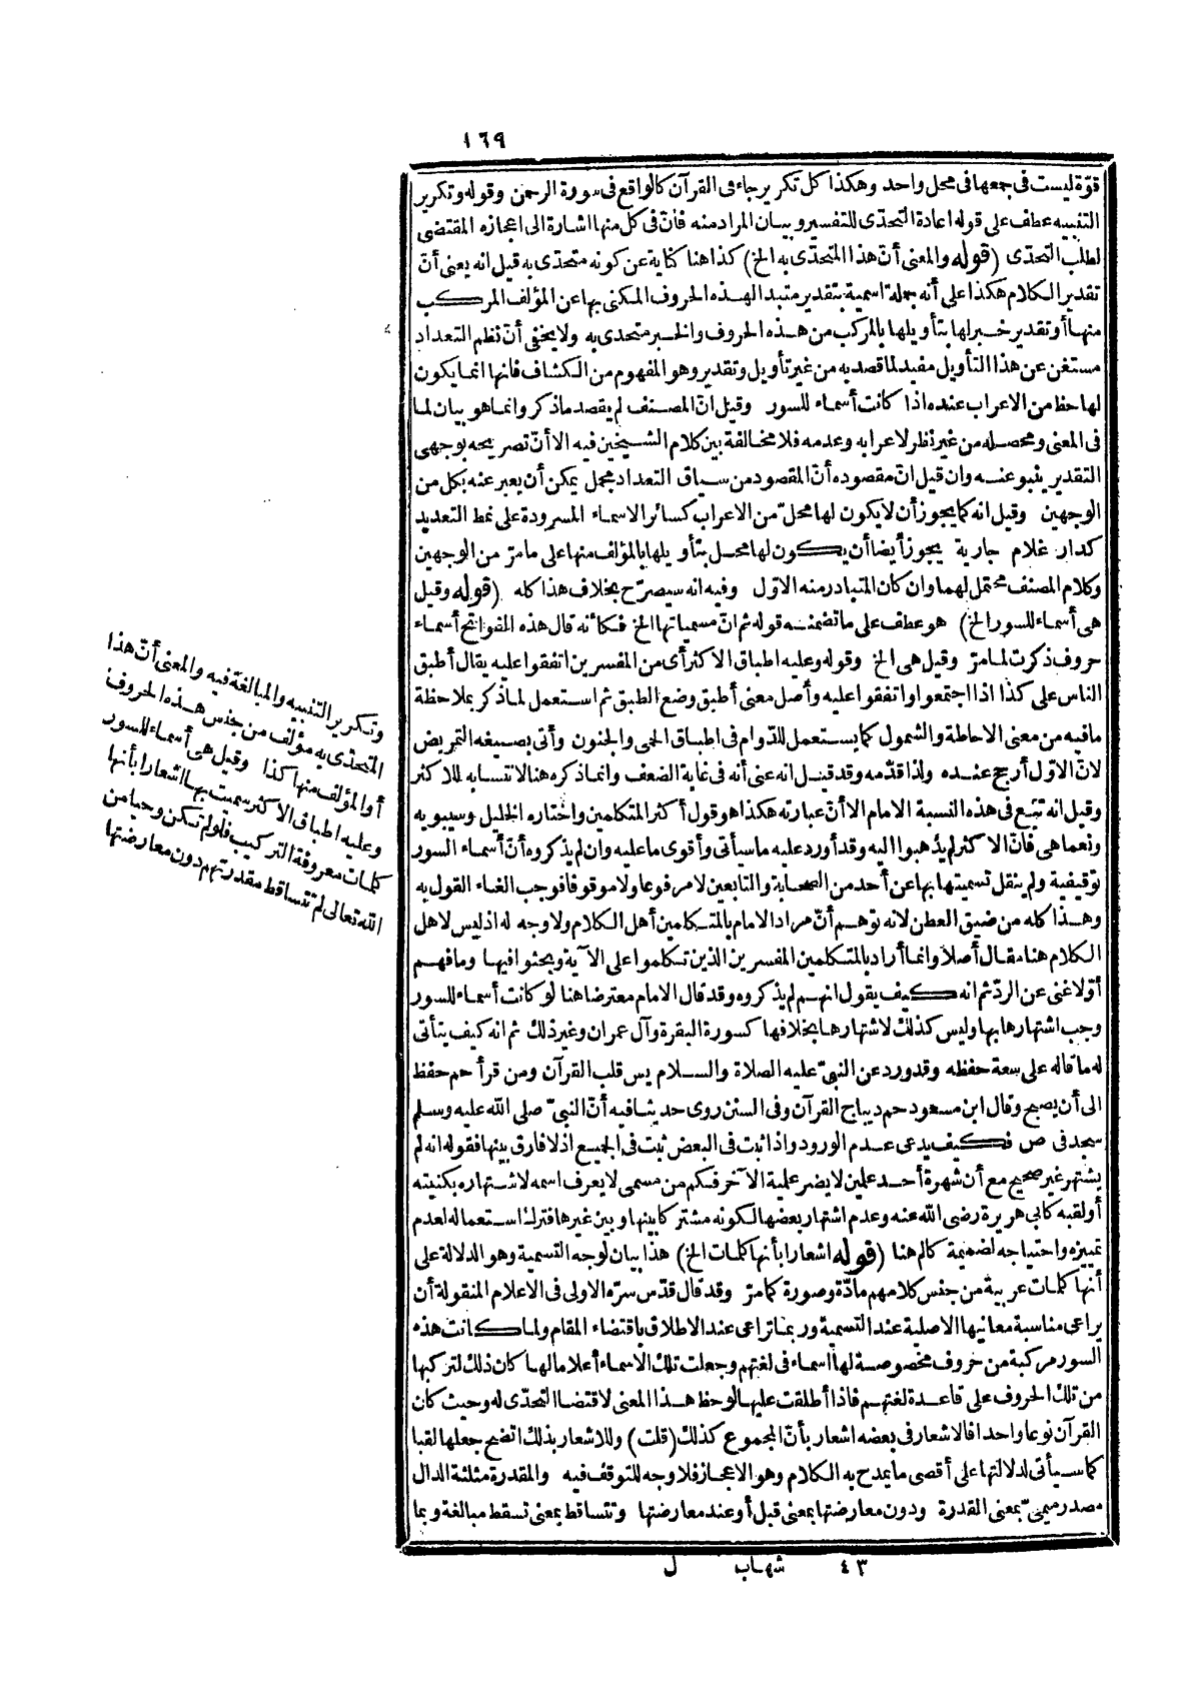 ١٦٩
قوّة ليست في جمعها في محل واحد وهكذا كل تكرير جاء في القرآن كالواقع في سورة الرحمن وقوله وتكرير
التنبيه عطف على قوله اعادة التحدّى للتفسير وبيان المراد منه فانّ في كل منها اشارة الى اعجازه المقتضى
لطلب التحدّى (قوله والمعنى أنّ هذا المتحدّى به الخ) كذا هنا كناية عن كونه متحدّى به قيل انه يعنى أنّ
تقدير الكلام هكذا على أنه جملة اسمية بتقدير مبتدا لهذه الحروف المكنى بها عن المؤلف المركب
منها أو تقدير خبر لها بتأويلها بالمركب من هذه الحروف والخبر متحدى به ولا يخفى أنّ نظم التعداد
مستغن عن هذا التأويل مفيد لما قصد به من غير تأويل وتقدير وهو المفهوم من الكشاف فانها انما يكون
لها حظ من الاعراب عنده اذا كانت أسماء للسور وقيل انّ المصنف لم يقصد ما ذكر وانما هو بيان لما
في المعنى ومحصله من غير نظر لاعرابه وعدمه فلا مخالفة بين كلام الشيخين فيه الا أنّ تصريحه بوجهى
التقدير ينبو عنه وان قيل انّ مقصوده أنّ المقصود من سياق التعداد مجمل يمكن أن يعبر عنه بكل من
الوجهين وقيل انه كما يجوز أن لا يكون لها محلّ من الاعراب كسائر الاسماء المسرودة على نمط التعديد
كدار غلام جارية يجوز أيضا أن يكون لها محل بتأويلها بالمؤلف منها على ما مرّ من الوجهين
وكلام المصنف محتمل لهما وان كان المتبادر منه الاوّل وفيه انه سيصرّح بخلاف هذا كله (قوله وقيل
هى أسماء للسور الخ) هو عطف على ما تضمنه قوله ثم انّ مسمياتها الخ فكأنه قال هذه الفواتح أسماء
حروف ذكرت لما مرّ وقيل هى الخ وقوله وعليه اطباق الاكثر أى من المفسرين اتفقوا عليه يقال أطبق
الناس على كذا اذا اجتمعوا واتفقوا عليه وأصل معنى أطبق وضع الطبق ثم استعمل لما ذكر بملاحظة
ما فيه من معنى الاحاطة والشمول كما يستعمل للدّوام في اطباق الحمى والجنون وأتى بصيغة التمريض
لانّ الاوّل أرجح عنده ولذا قدّمه وقد قيل انه عنى أنه في غاية الضعف وانما ذكره هنا لانتسابه للاكثر
وقيل انه تبع في هذه النسبة الامام الا أنّ عبارته هكذا هو قول أكثر المتكلمين واختاره الخليل وسيبويه
ونعما هى فانّ الاكثر لم يذهبوا اليه وقد أورد عليه ما سيأتى وأقوى ما عليه وان لم يذكروه أنّ أسماء السور
توقيفية ولم ينقل تسميتها بها عن أحد من الصحابة والتابعين لا مرفوعا ولا موقوفا فوجب الغاء القول به
وهذا كله من ضيق العطن لانه توهم أنّ مراد الامام بالمتكلمين أهل الكلام ولا وجه له اذ ليس لاهل
الكلام هنا مقال أصلا وانما أراد بالمتكلمين المفسرين الذين تكلموا على الآية وبحثوا فيها وما فهم
أوّلا غنى عن الردّ ثم انه كيف يقول انهم لم يذكروه وقد قال الامام معترضا هنا لو كانت أسماء للسور
وجب اشتهارها بها وليس كذلك لاشتهارها بخلافها كسورة البقرة وآل عمران وغير ذلك ثم انه كيف يتأتى
له ما قاله على سعة حفظه وقد ورد عن النبىّ عليه الصلاة والسلام يس قلب القرآن ومن قرأ حم حفظ
الى أن يصبح وقال ابن مسعود حم ديباج القرآن وفى السنن روى حديثا فيه أنّ النبىّ صلى الله عليه وسلم
سجد في ص فكيف يدعى عدم الورود واذا ثبت في البعض ثبت في الجميع اذ لا فارق بينها فقوله انه لم
يشتهر غير صحيح مع أن شهرة أحد علمين لا يضر علمية الآخر فكم من مسمى لا يعرف اسمه لاشتهاره بكنيته
أو لقبه كابى هريرة رضى الله عنه وعدم اشتهار بعضها لكونه مشتركا بينها وبين غيرها فترك استعماله لعدم
تميزه واحتياجه لضميمة كالم هنا (قوله اشعارا بأنها كلمات الخ) هذا بيان لوجه التسمية وهو الدلالة على
أنها كلمات عربية من جنس كلامهم مادّة وصورة كما مرّ وقد قال قدّس سرّه الاولى في الاعلام المنقولة أن
يراعى مناسبة معانيها الاصلية عند التسمية وربما تراعى عند الاطلاق باقتضاء المقام ولما كانت هذه
السور مركبة من حروف مخصوصة لها اسماء في لغتهم وجعلت تلك الاسماء أعلاما لها كان ذلك لتركبها
من تلك الحروف على قاعدة لغتهم فاذا أطلقت عليها لوحظ هذا المعنى لاقتضاء التحدّى له وحيث كان
القرآن نوعا واحدا فالاشعار في بعضه اشعار بأنّ المجموع كذلك (قلت) وللاشعار بذلك اتضح جعلها لقبا
كما سيأتى لدلالتها على أقصى ما يمدح به الكلام وهو الاعجاز فلا وجه للتوقف فيه والمقدرة مثلثة الدال
مصدر ميمىّ بمعنى القدرة ودون معارضتها بمعنى قبل أو عند معارضتها وتتساقط بمعنى تسقط مبالغة وبما
وتكرير التنبيه والمبالغة فيه والمعنى أنّ هذا
المتحدّى به مؤلف من جنس هذه الحروف
أو المؤلف منها كذا وقيل هى أسماء للسور
وعليه اطباق الاكثر سميت بها اشعارا بأنها
كلمات معروفة التركيب فلو لم تكن وحيا من
الله تعالى لم تتساقط مقدرتهم دون معارضتها
٤٣ شهاب ل